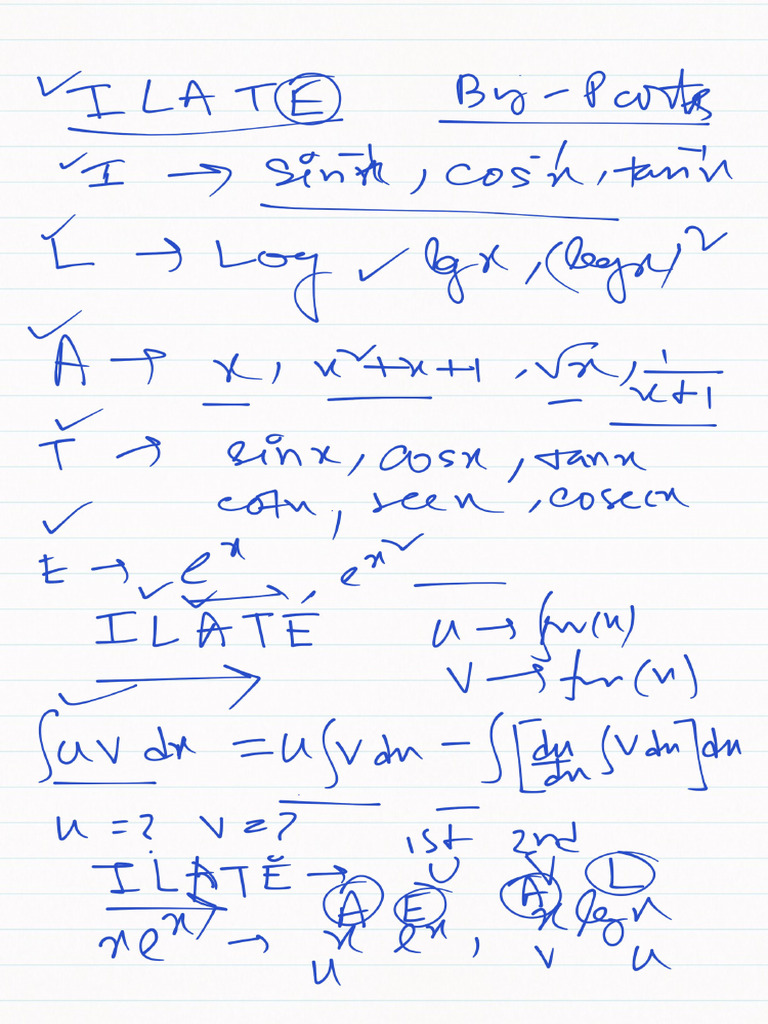 ✓ I L A T E   By - Parts
✓ I → sin⁻¹x, cos⁻¹x, tan⁻¹x
✓ L → Log ✓ logx, (logx)²
✓ A → x, x²+x+1, √x, 1/(x+1)
✓ T → sinx, cosx, tanx
cotx, secx, cosecx
✓ E → eˣ, eˣ²
I L A T E   u → fn(x)
v → fn(x)
∫uv dx = u∫v dx - ∫[du/dx ∫v dx] dx
u = ? v = ? 1st 2nd
I L A T E → U V
A E, A L
xeˣ → x eˣ, x logx
u v u